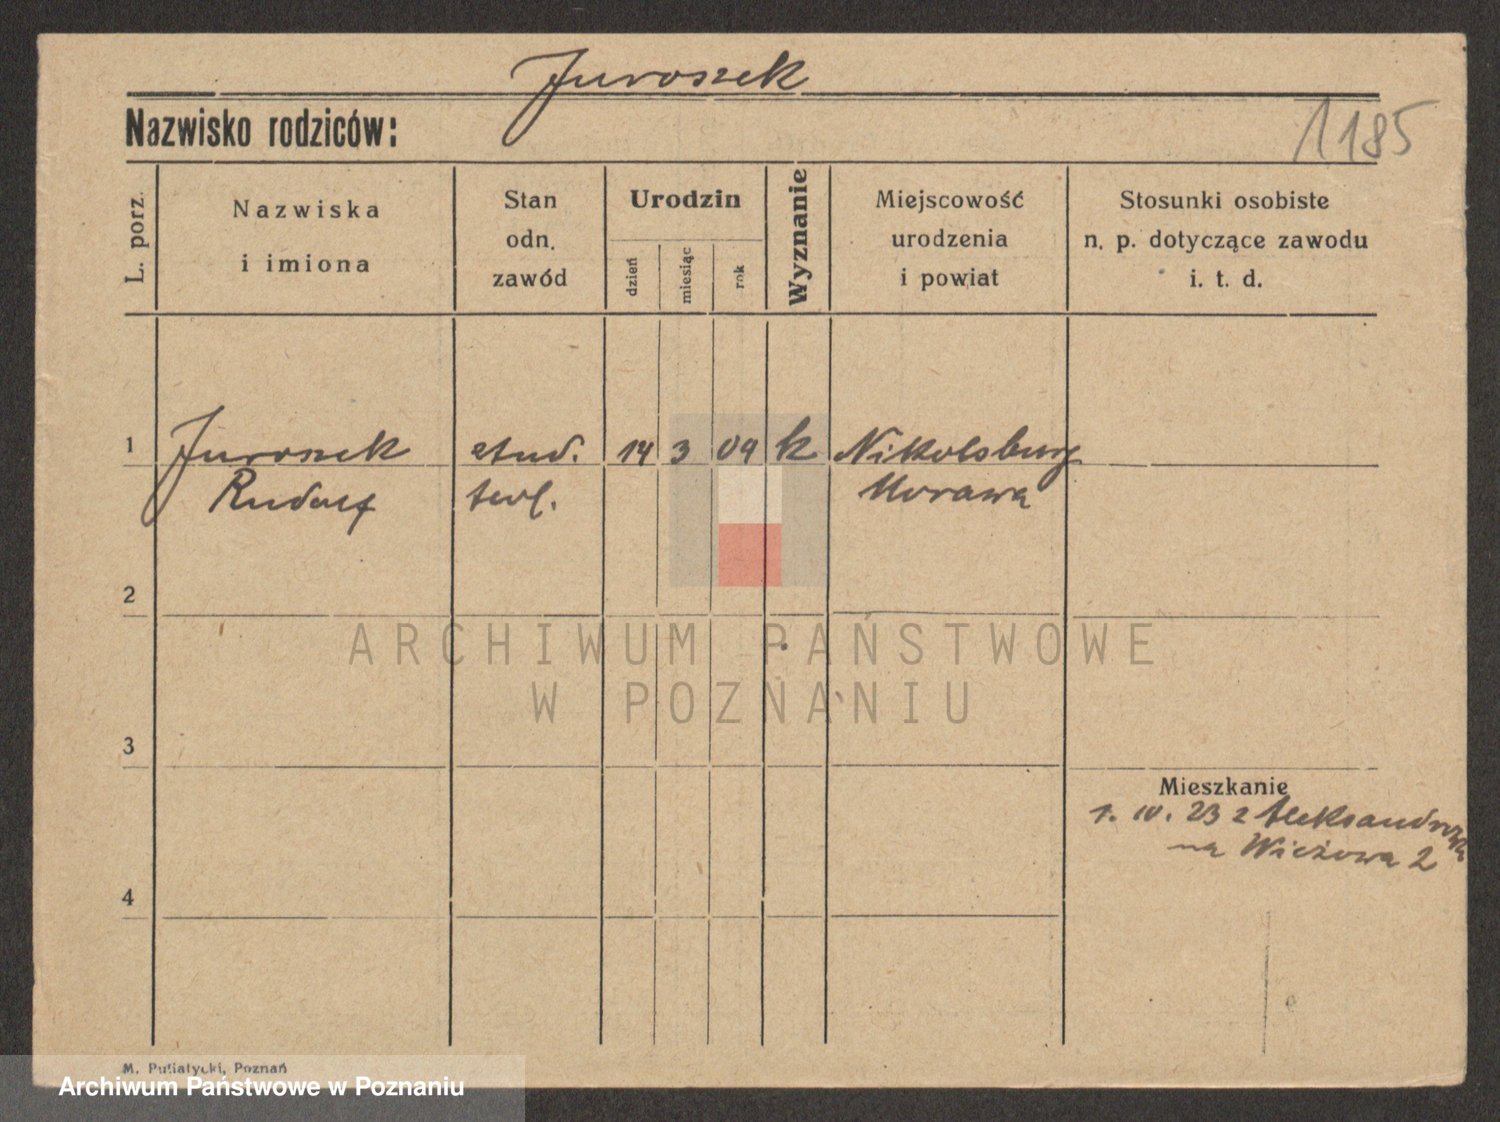 Juroszek
Nazwisko rodziców:
1185
L. porz.
Nazwiska
i imiona
Stan
odn.
zawód
Urodzin
dzień
miesiąc
rok
Wyznanie
Miejscowość
urodzenia
i powiat
Stosunki osobiste
n. p. dotyczące zawodu
i. t. d.
1 Juroszek stud. 14 3 09 k Nikolsburg
Rudolf teol. Morawa
2
ARCHIWUM PAŃSTWOWE
W POZNANIU
3
Mieszkanie
1. IV. 23 z Aleksandrzyka
na Wieżowa 2
4
M. Putiatycki, Poznań
Archiwum Państwowe w Poznaniu